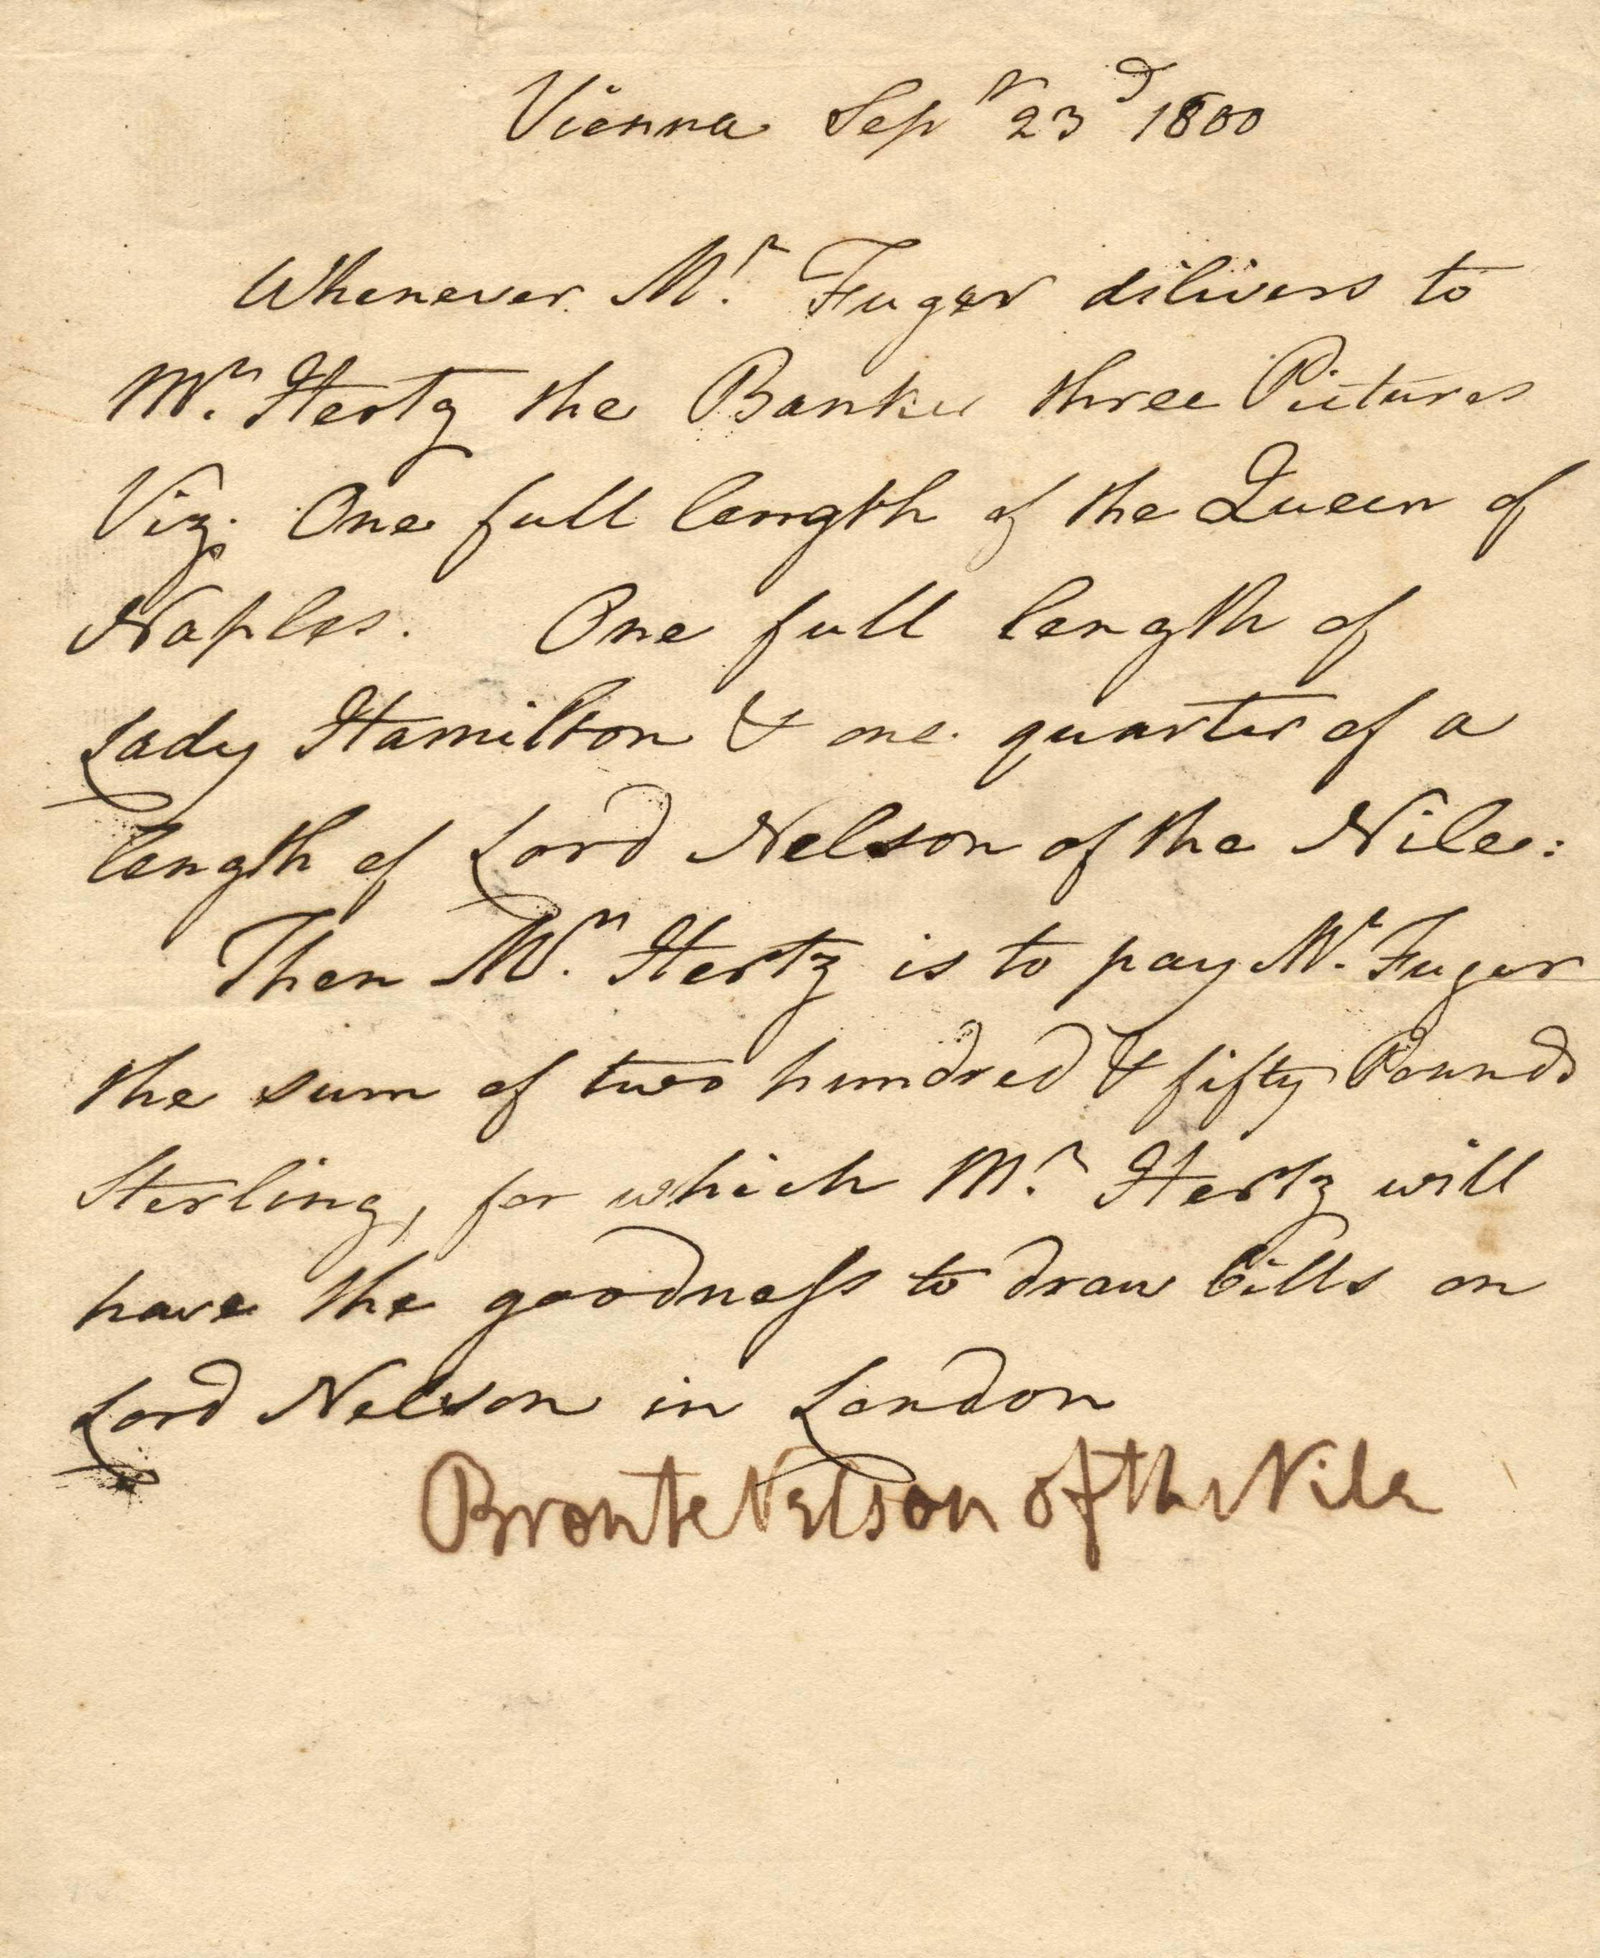 Vienna Sepr 23d 1800
Whenever Mr. Fuger dilivers to
Mr. Hertz the Banker three Pictures
Viz. One full length of the Queen of
Naples. One full length of
Lady Hamilton & one quarter of a
length of Lord Nelson of the Nile:
Then Mr. Hertz is to pay Mr. Fuger
the sum of two hundred & fifty Pounds
Sterling, for which Mr. Hertz will
have the goodneſs to draw bills on
Lord Nelson in London
Bronte Nelson of the Nile